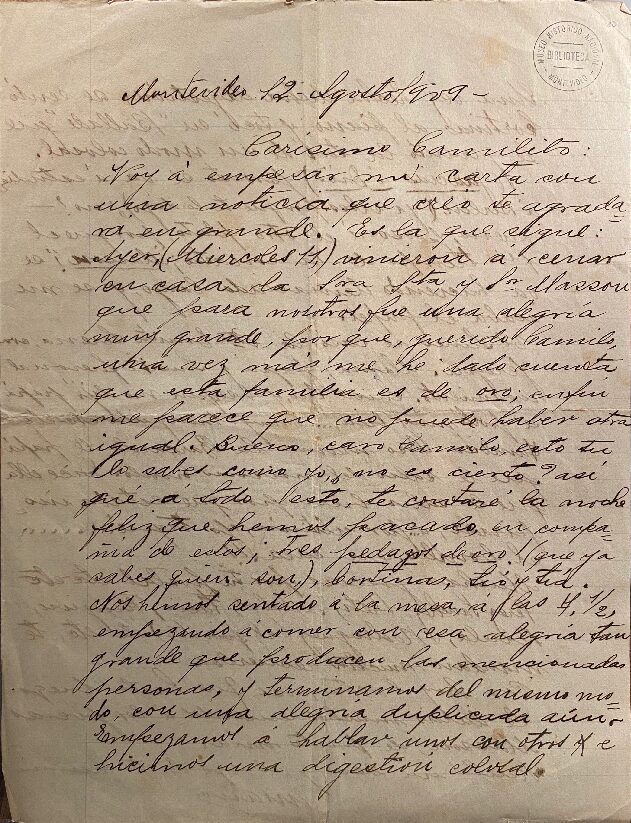 MUSEO HISTORICO NACIONAL
BIBLIOTECA
MONTEVIDEO
Montevideo 12 - Agosto/909 -
Carisimo Camilito:
Voy á empesar mi carta con
una noticia que creo te agrada=
rá en grande. Es la que sigue:
Ayer, (Miercoles 11,) vinieron á cenar
en casa la Sra Sta y Sr. Masson
que para nosotros fue una alegria
muy grande, por que, querido Camilo,
una vez más me he dado cuenta
que esta familia es de oro; enfin
me parece que no puede haber otra
igual. Bueno, caro Camilo, esto tu
lo sabes como yo, no es cierto? asi
qué á todo esto, te contaré la noche
feliz que hemos pacado, en compa=
ñia de estos, tres pedazos de oro! (que ya
sabes quien son,), Cortinas, tio y tia.
Nos hemos sentado á la mesa, a las 7 1/2,
empezando á comer con esa alegria tan
grande que producen las mencionadas
personas, y terminamos del mismo mo=
do, con una alegria duplicada aún.
Empezamos a hablar unos con otros é
hicimos una digestion colosal